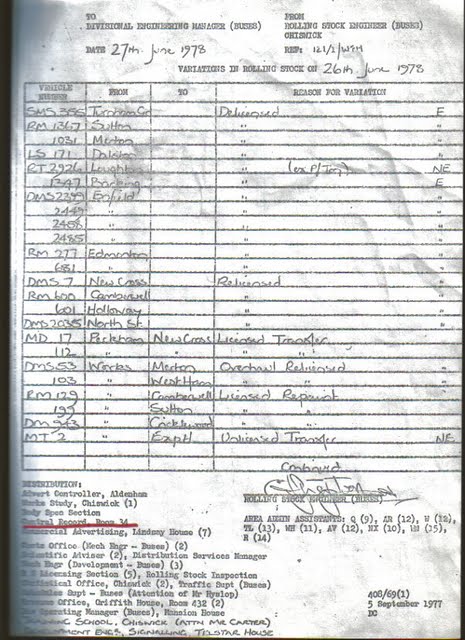 TO FROM
DIVISIONAL ENGINEERING MANAGER (BUSES) ROLLING STOCK ENGINEER (BUSES)
CHISWICK
DATE 27th June 1978 REF: 121/2/
VARIATIONS IN ROLLING STOCK ON 26th June 1978
VEHICLE NUMBER FROM TO REASON FOR VARIATION
SMS 355 Turnham Gr Delicensed E
RM 1367 Sutton "
1031 Merton "
LS 171 Dalston "
RT 2926 Loughton " (ex P/Trng) NE
1347 Barking " E
DMS 2399 Enfield "
2449 " "
2468 " "
2485 " "
RM 277 Edmonton "
681 " "
DMS 7 New Cross Relicensed
RM 600 Camberwell "
601 Holloway "
DMS 2035 North St. "
MD 17 Peckham New Cross Licensed Transfer
112 " " " "
DMS 53 Works Merton Overhaul Relicensed
103 " West Ham " "
RM 129 " Camberwell Licensed Repaint
199 " Sutton " "
DM 963 " Cricklewood " "
MT 2 " ExpH Unlicensed Transfer NE
Continued
DISTRIBUTION:
Advert Controller, Aldenham
Works Study, Chiswick (1)
Body Spec Section
Central Record, Room 34
Commercial Advertising, Lindsay House (7)
ROLLING STOCK ENGINEER (BUSES)
AREA ADMIN ASSISTANTS: Q (9), AR (12), W (12),
TL (13), WH (11), AV (12), NX (10), (15),
R (14)
Costs Office (Mech Engr - Buses) (2)
Scientific Adviser (2), Distribution Services Manager
Mech Engr (Development - Buses) (3)
Licensing Section (5), Rolling Stock Inspection
Statistical Office, Chiswick (2), Traffic Supt (Buses)
Schedules Supt - Buses (Attention of Mr Hyslop)
Office, Griffith House, Room 432 (2)
Operating Manager (Buses), Mansion House
TRAINING SCHOOL, CHISWICK (ATTN MR CARTER)
ENGR, SIGNALLING, TELSTAR HOUSE
408/69(1)
5 September 1977
DC